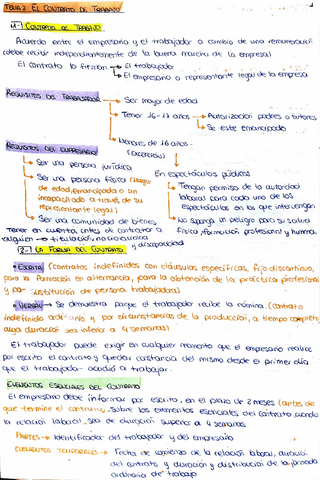 TEMA 2. EL CONTRATO DE TRABAJO
1- CONTRATO DE TRABAJO
Acuerdo entre el empresario y el trabajador a cambio de una remuneración
(debe recibir independientemente de la buena marcha de la empresa)
El contrato lo firman → El trabajador
El empresario o representante legal de la empresa
REQUISITOS DEL TRABAJADOR
Ser mayor de edad
Tener 16-17 años → Autorización padres o tutores
Se esté emancipado
Menores de 16 años.
(EXCEPCIÓN)
En espectáculos públicos
Tengan permiso de la autoridad
laboral para cada uno de los
espectáculos en los que intervengan
No suponga un peligro para su salud
física, formación profesional y humana.
REQUISITOS DEL EMPRESARIO
Ser una persona jurídica
Ser una persona física (mayor
de edad, emancipada o un
incapacitado a través de su
representante legal)
Ser una comunidad de bienes
Tener en cuenta antes de contratar a
alguien → titulación, nacionalidad
y discapacidad
2-1 LA FORMA DEL CONTRATO
• ESCRITA (Contratos indefinidos con cláusulas específicas, fijo discontinuo,
para la formación en alternancia, para la obtención de la práctica profesional
y por sustitución de persona trabajadora)
• VERBAL → Se demuestra porque el trabajador recibe la nómina. (Contrato
indefinido ordinario y por circunstancias de la producción, a tiempo completo
cuya duración sea inferior a 4 semanas)
El trabajador puede exigir en cualquier momento que el empresario realice
por escrito el contrato y quedar constancia del mismo desde el primer día
que el trabajador acudió a trabajar.
ELEMENTOS ESENCIALES DEL CONTRATO
El empresario debe informar por escrito, en el plazo de 2 meses (antes de
que termine el contrato), sobre los elementos esenciales del contrato cuando
la relación laboral sea de duración superior a 4 semanas.
PARTES → Identificación del trabajador y del empresario
ELEMENTOS TEMPORALES → Fecha de comienzo de la relación laboral, duración
del contrato y duración y distribución de la jornada
ordinaria de trabajo